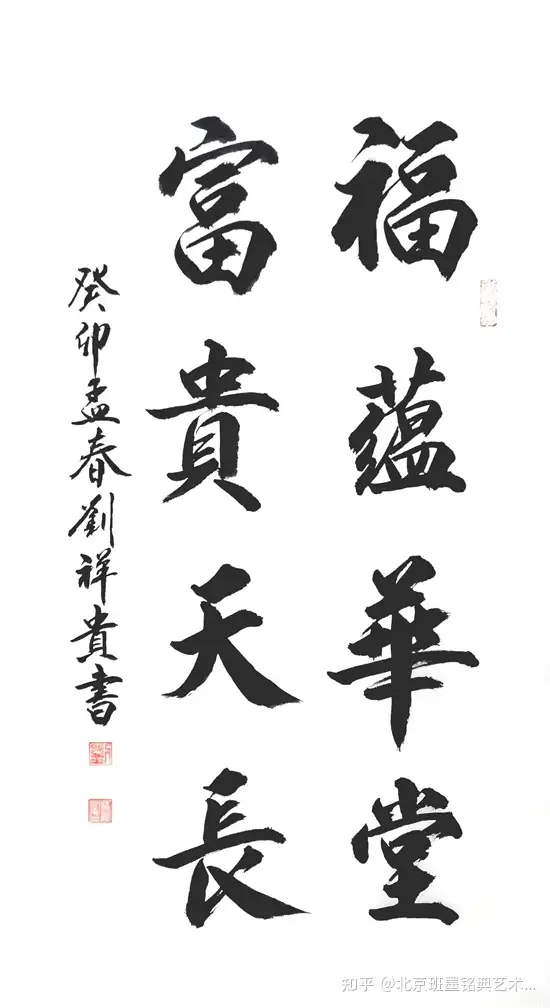 福蘊華堂
富貴天長
癸卯孟春劉祥貴書
知乎 @北京班墨铭典艺术...